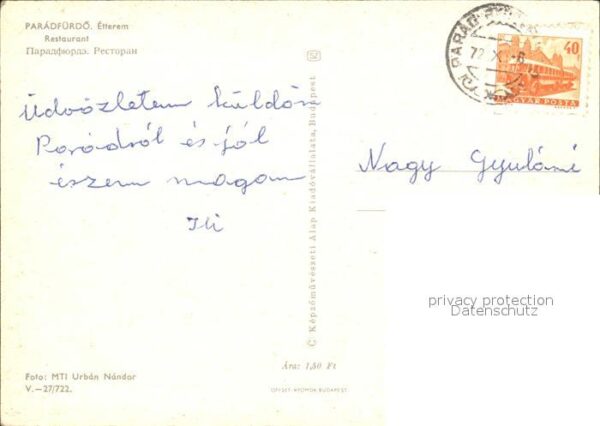 PARÁDFÜRDŐ. Étterem
Restaurant
Парадфюрдэ. Ресторан
Üdvözletem küldöm
Parádról és jól
észem magam
Ili
Foto: MTI Urbán Nándor
V.—27/722.
© Képzőművészeti Alap Kiadóvállalata, Budapest
Ára: 1,50 Ft
OFFSET-NYOMDA BUDAPEST
PARÁD
72 X
40
MAGYAR POSTA
Nagy Gyuláné
privacy protection
Datenschutz